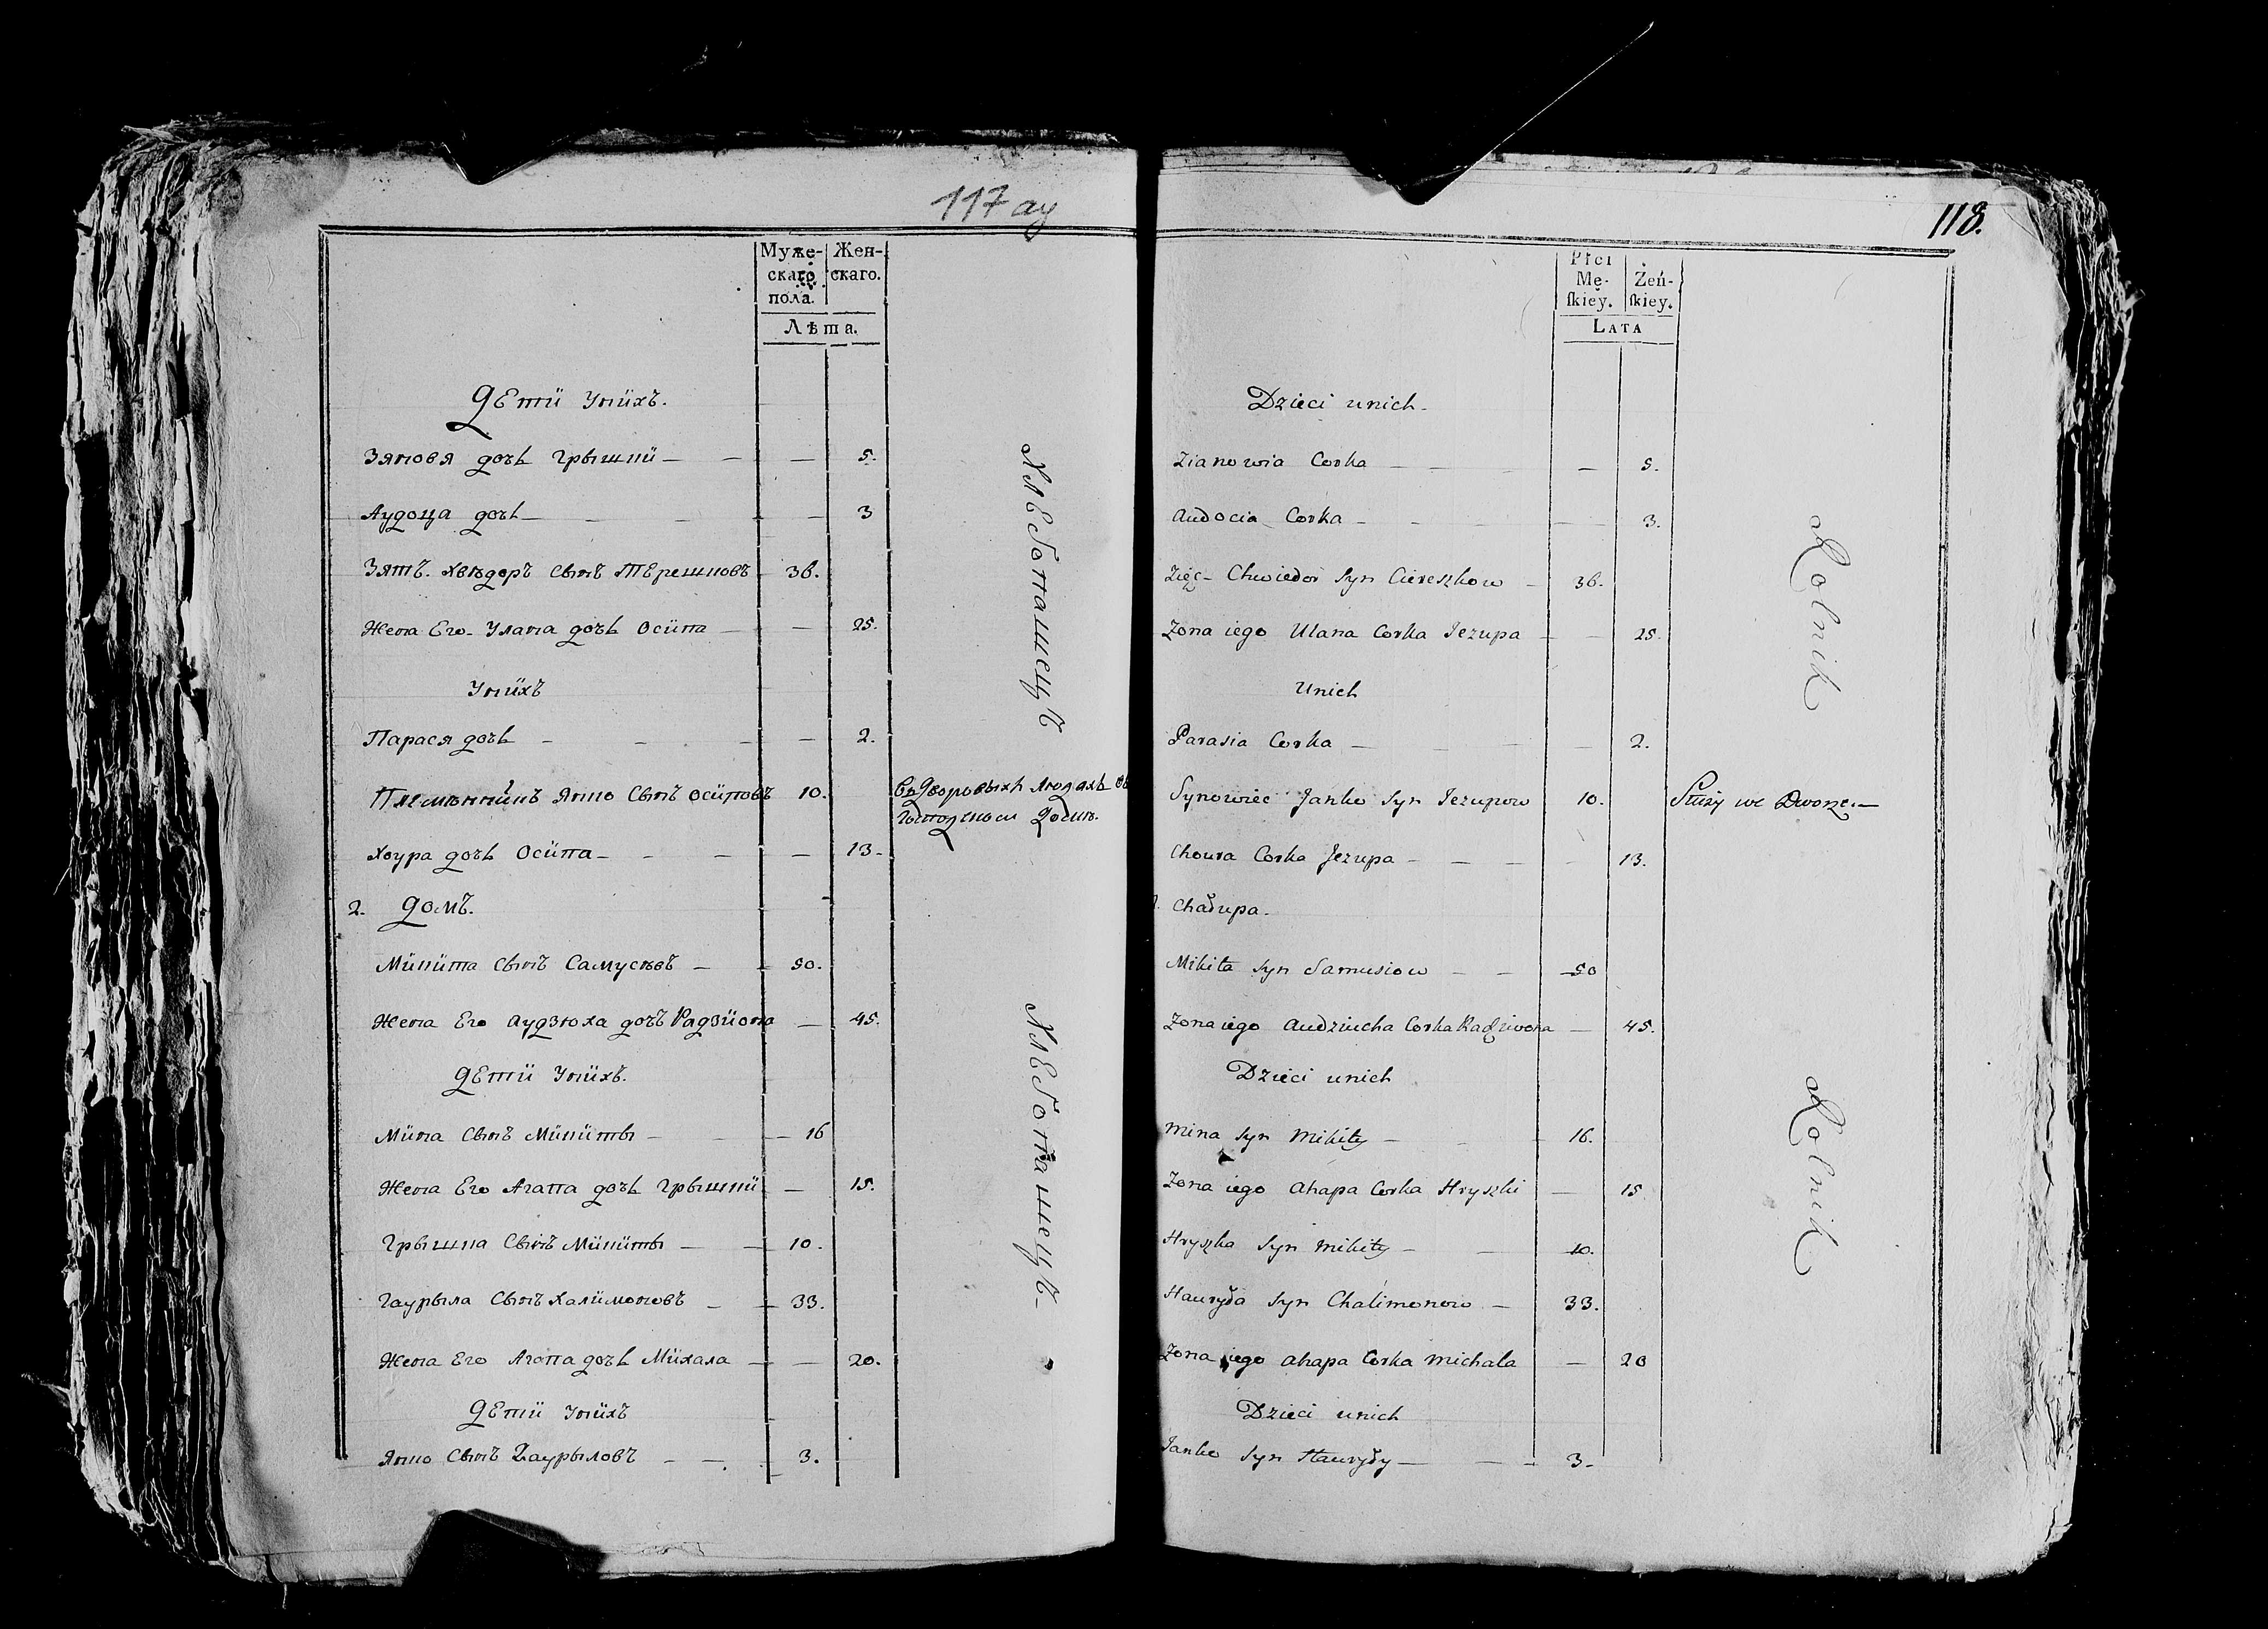 117 ау
Муже-
скаго
пола.
Жен-
скаго.
Лѣта.
Дети Унихъ.
Зяновя дочь Грышки — — — 5.
Аудоця дочь — — — — 3
Зять. Хвѣдеръ сынъ Терешковъ 36.
Жена Его Улана дочь Осипа — — 25.
Унихъ
Парася дочь — — — — 2.
Племянникъ Янко Сынъ Осиповъ 10.
Въ Дворовыхъ Людяхъ
Хоура дочь Осипа — — — — 13
2. Домъ.
Микита сынъ Самусѣвъ — — 50.
Жена Его Аудзюха дочъ Радзiона — 45.
Дети Унихъ.
Мина Сынъ Микиты — — 16
Жена Его Агапа дочь Грышки — 15.
Грышка Сынъ Микиты — — 10.
Гаурыла Сынъ Халимоновъ — — 33.
Жена Его Агапа дочь Михала — — 20.
Дети Унихъ
Янко Сынъ Гаурыловъ — — 3.
Хлебопашецъ
Хлебопашецъ
118.
Płci
Mę-
skiey.
Żeń-
skiey.
Lata
Dzieci unich.
Zianowia Corka — — — — 5.
Audocia Corka — — — — 3.
Zięć Chwiedor Syn Cereszkow — 36.
Zona iego Ulana Corka Jezupa — — 25.
Unich
Parasia Corka — — — — 2.
Synowiec Janko Syn Jezupow 10. Służy we Dworze.—
Choura Corka Jezupa — — — — 13.
Chałupa.
Mikita Syn Samusiow — — 50
Zona iego Audziucha Corka Radziwona — 45.
Dzieci unich
Mina Syn Mikity — — 16.
Zona iego Ahapa Corka Hryszki — 15
Hryszka Syn Mikity — — 10.
Hauryła Syn Chalimonow — 33.
Zona iego Ahapa Corka Michała — 20
Dzieci unich
Janko Syn Hauryły — — — 3.
Rolnik
Rolnik